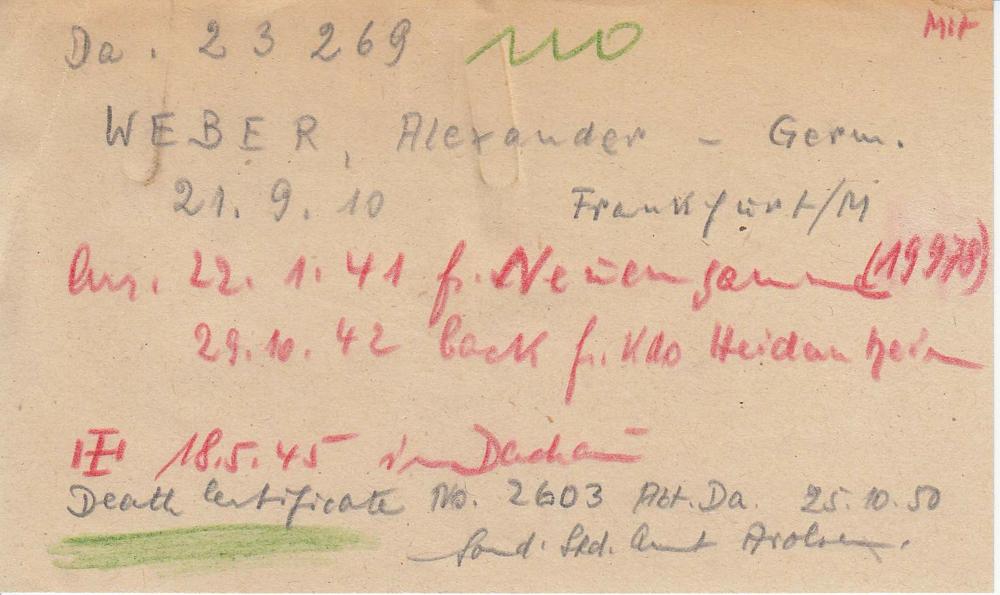 Da. 23 269 Mit
WEBER, Alexander - Germ.
21.9.10 Frankfurt/M
Arr. 22.1.41 f. Neuengamme (19978)
29.10.42 back fr. Kdo Heidenheim
18.5.45 in Dachau
Death Certificate No. 2603 Abt. Da. 25.10.50
Sond. Std. Amt Arolsen.